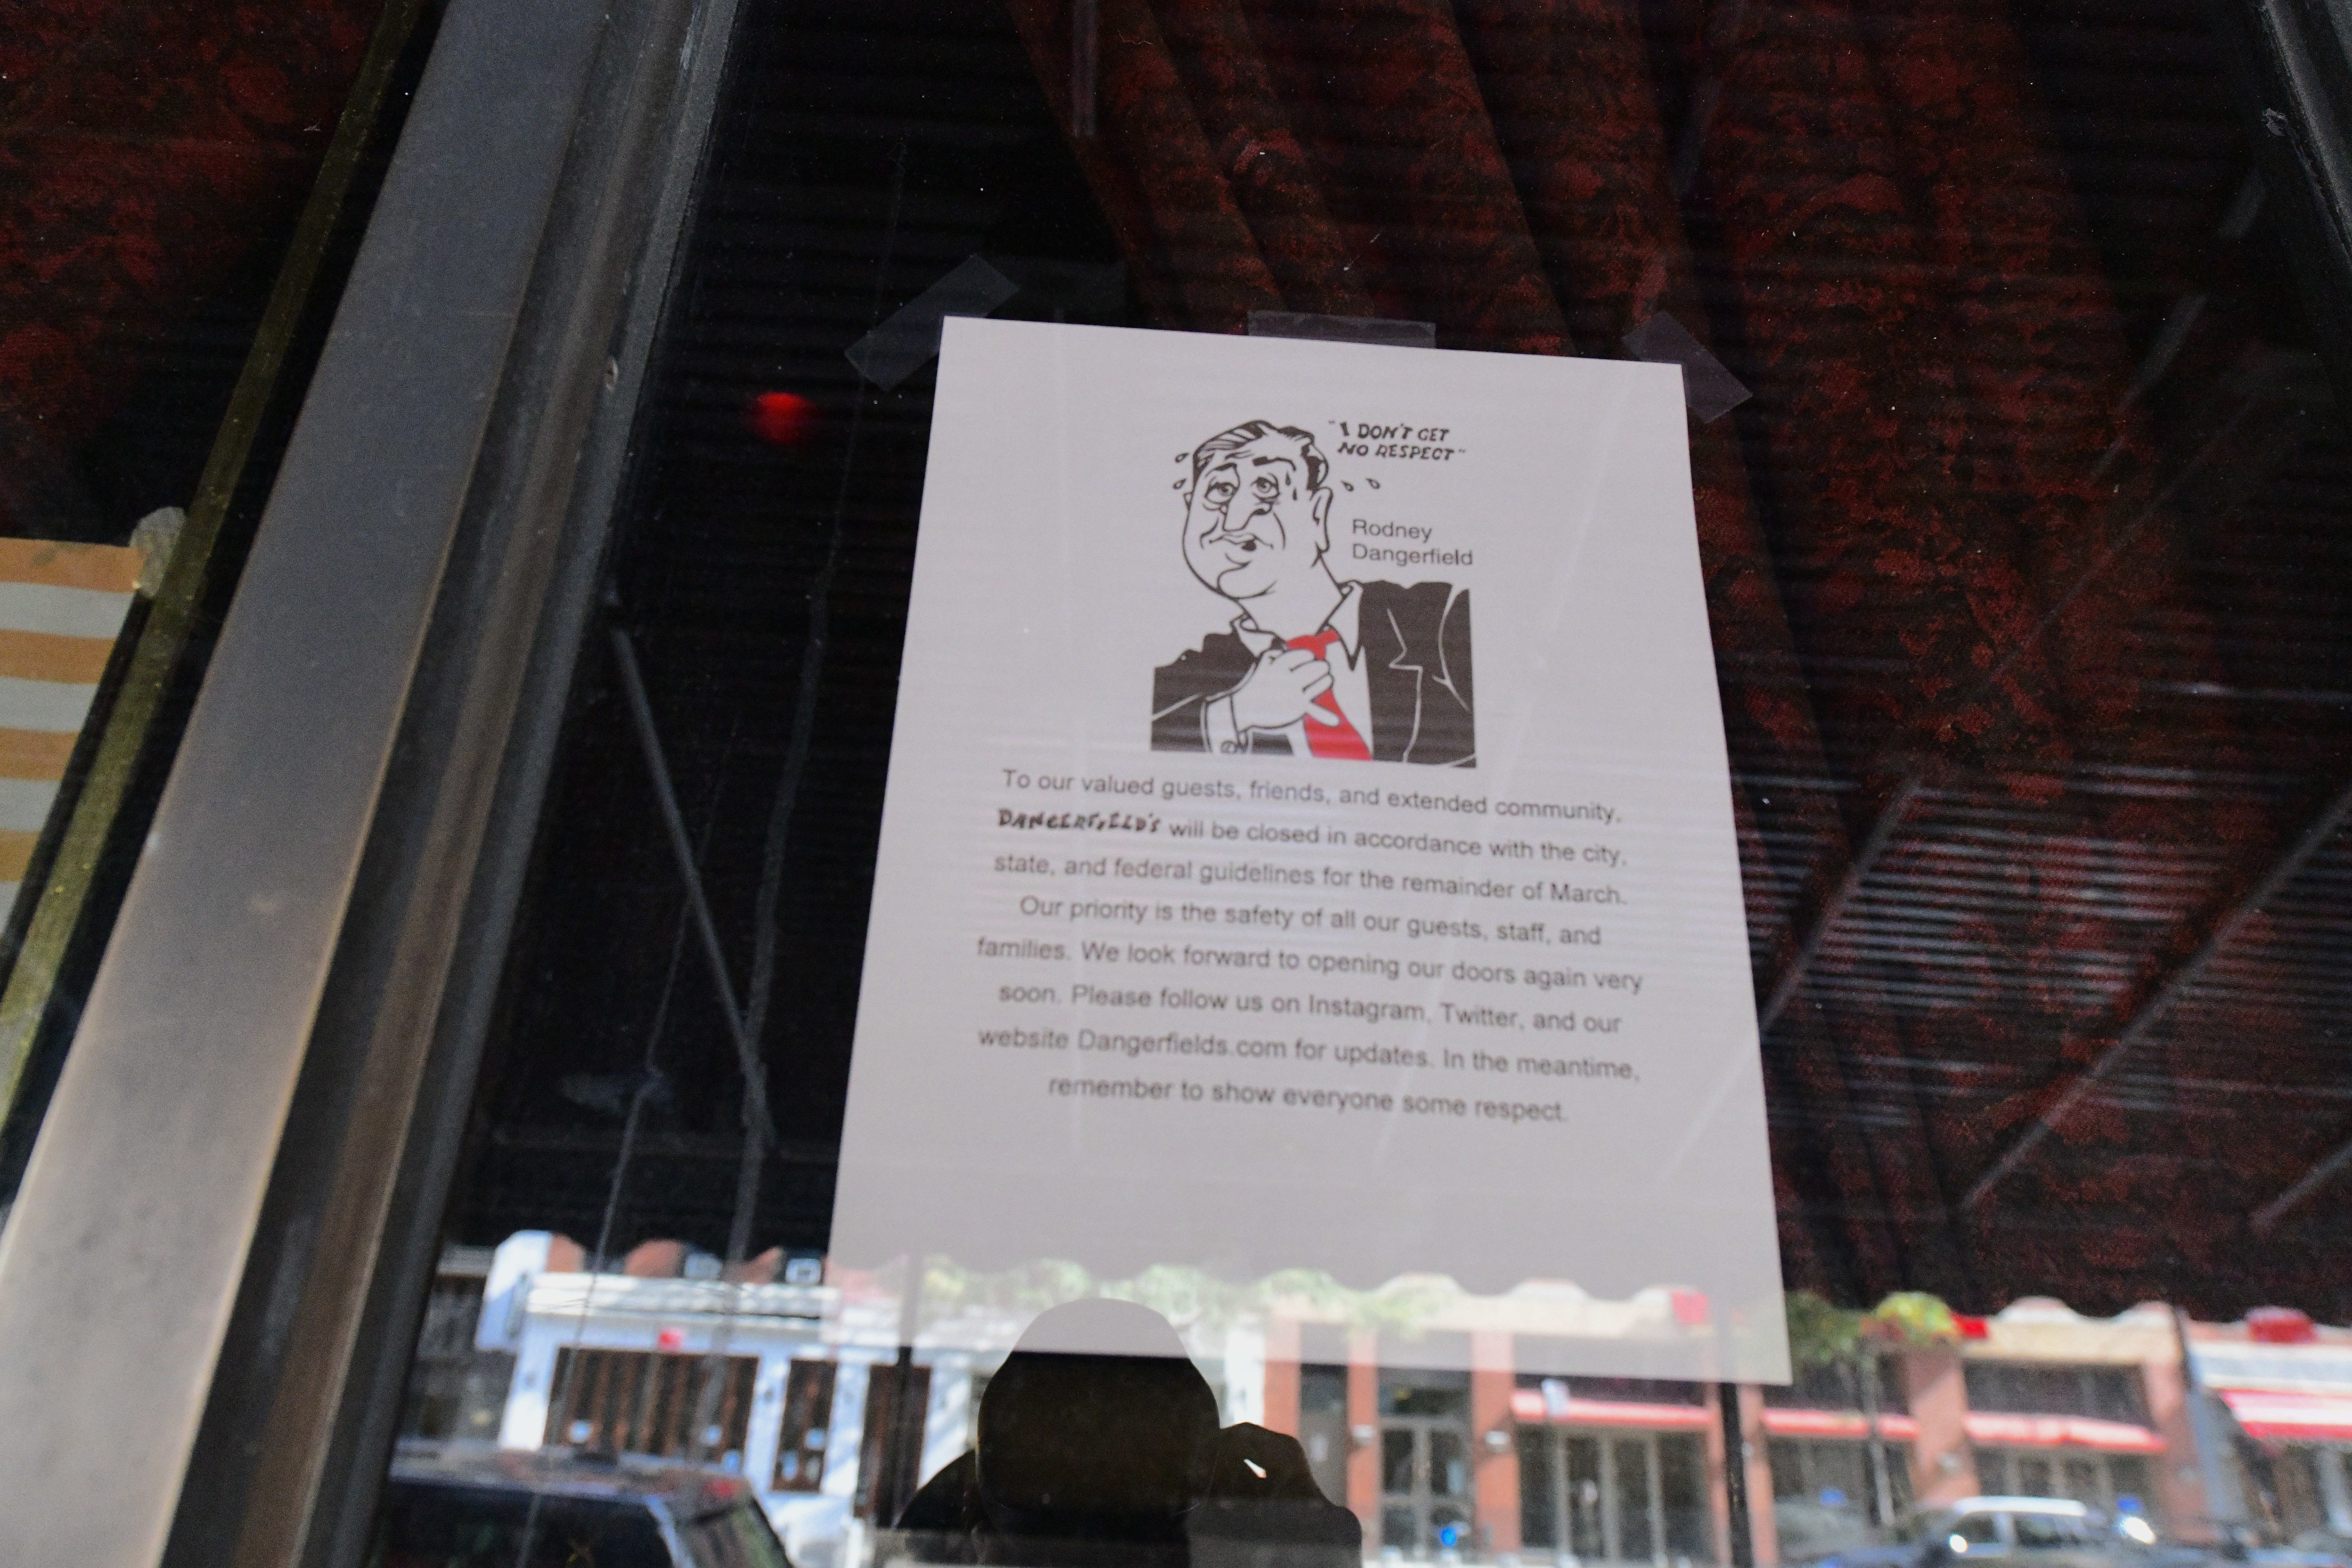 "I DON'T GET
NO RESPECT"
Rodney
Dangerfield
To our valued guests, friends, and extended community,
DANGERFIELD'S will be closed in accordance with the city,
state, and federal guidelines for the remainder of March.
Our priority is the safety of all our guests, staff, and
families. We look forward to opening our doors again very
soon. Please follow us on Instagram, Twitter, and our
website Dangerfields.com for updates. In the meantime,
remember to show everyone some respect.